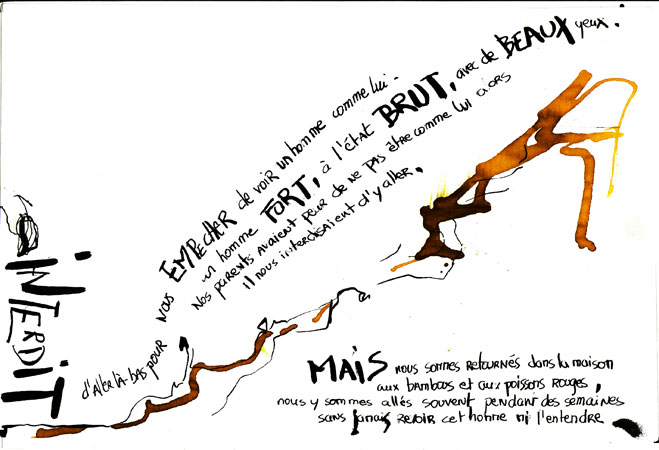 INTERDIT
d'aller là-bas pour nous EMPECHER de voir un homme comme lui.
un homme FORT, à l'état BRUT, avec de BEAUX yeux.
Nos parents avaient peur de ne pas être comme lui alors
il nous interdisaient d'y aller.
MAIS nous sommes retournés dans la maison
aux bambous et aux poissons rouges,
nous y sommes allés souvent pendant des semaines
sans jamais revoir cet homme ni l'entendre